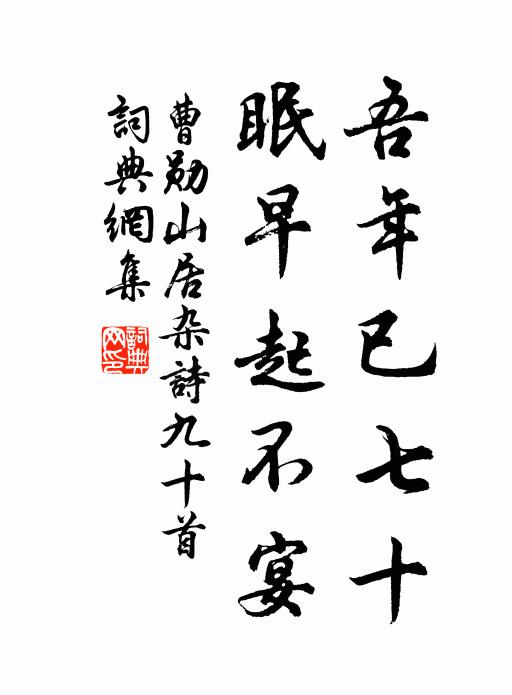 吾年已七十
眠早起不宴
曹勋山居杂詩九十首
詞典網集
詞典網印